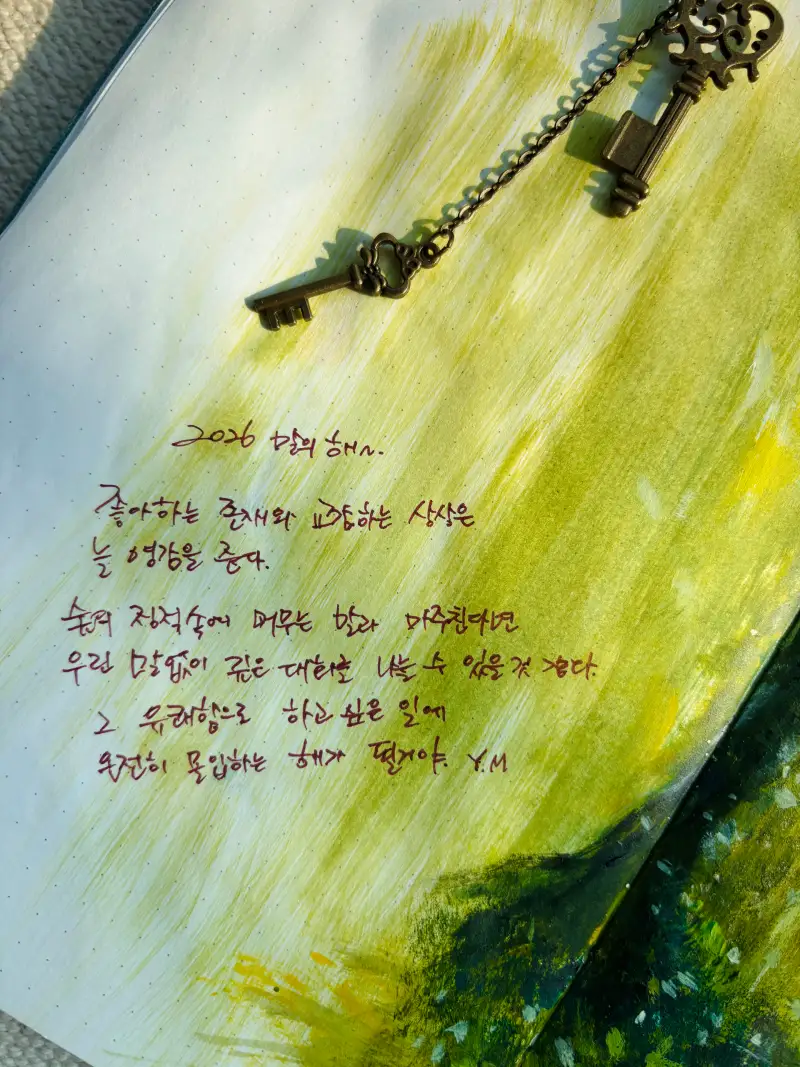 2026 말의 해~.
좋아하는 존재와 교감하는 상상은
늘 영감을 준다.
숲의 정적속에 머무는 말과 마주친다면
우린 말없이 깊은 대화로 나눌 수 있을것 같다.
그 유쾌함으로 하고 싶은 일에
온전히 몰입하는 해가 될거야. Y.M